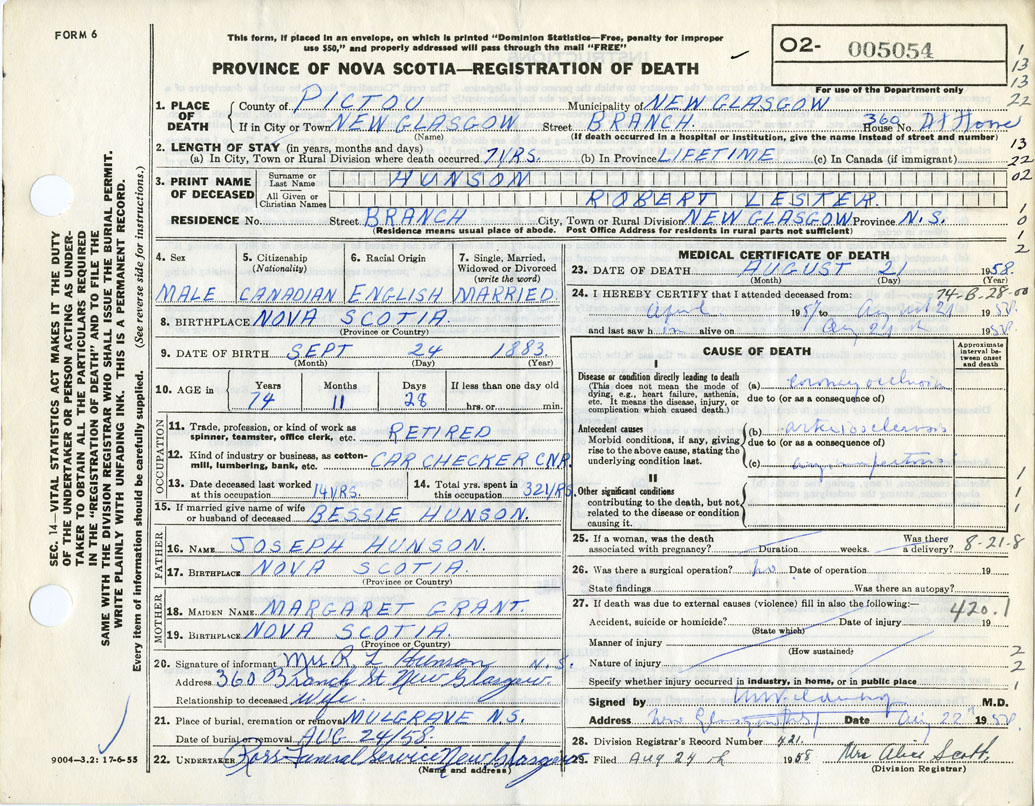 FORM 6
This form, if placed in an envelope, on which is printed "Dominion Statistics—Free, penalty for improper
use $50," and properly addressed will pass through the mail "FREE"
PROVINCE OF NOVA SCOTIA—REGISTRATION OF DEATH
O2- 005054
For use of the Department only
1
13
13
22
1. PLACE OF DEATH
County of PICTOU Municipality of NEW GLASGOW
If in City or Town NEW GLASGOW Street BRANCH. 360 House No. At Home
(Name) (If death occurred in a hospital or institution, give the name instead of street and number)
2. LENGTH OF STAY (in years, months and days)
(a) In City, Town or Rural Division where death occurred 7 YRS. (b) In Province LIFETIME (c) In Canada (if immigrant)
13
22
02
3. PRINT NAME OF DECEASED
Surname or Last Name HUNSON
All Given or Christian Names ROBERT LESTER.
RESIDENCE No. Street BRANCH City, Town or Rural Division NEW GLASGOW Province N.S.
(Residence means usual place of abode. Post Office Address for residents in rural parts not sufficient)
1
0
1
2
4. Sex
MALE
5. Citizenship
(Nationality)
CANADIAN
6. Racial Origin
ENGLISH
7. Single, Married,
Widowed or Divorced
(write the word)
MARRIED
8. BIRTHPLACE NOVA SCOTIA.
(Province or Country)
9. DATE OF BIRTH SEPT 24 1883.
(Month) (Day) (Year)
10. AGE in Years Months Days If less than one day old
74 11 28 hrs. or min.
OCCUPATION
11. Trade, profession, or kind of work as
spinner, teamster, office clerk, etc. RETIRED
12. Kind of industry or business, as cotton-
mill, lumbering, bank, etc. CAR CHECKER CNR.
13. Date deceased last worked
at this occupation 14 YRS.
14. Total yrs. spent in
this occupation 32 YRS.
15. If married give name of wife
or husband of deceased BESSIE HUNSON.
FATHER
16. NAME JOSEPH HUNSON.
17. BIRTHPLACE NOVA SCOTIA
(Province or Country)
MOTHER
18. MAIDEN NAME MARGARET GRANT.
19. BIRTHPLACE NOVA SCOTIA.
(Province or Country)
20. Signature of informant Mrs. R. L Hunson N.S.
Address 360 Branch St New Glasgow.
Relationship to deceased Wife
21. Place of burial, cremation or removal MULGRAVE N.S.
Date of burial or removal AUG 24/58.
22. UNDERTAKER Ross Funeral Service New Glasgow
(Name and address)
MEDICAL CERTIFICATE OF DEATH
23. DATE OF DEATH AUGUST 21 1958.
(Month) (Day) (Year)
24. I HEREBY CERTIFY that I attended deceased from: 74-B-28-00
April 1957 to August 21 1958.
and last saw h im alive on Aug 21 1958.
CAUSE OF DEATH
Approximate
interval be-
tween onset
and death
I
Disease or condition directly leading to death
(This does not mean the mode of
dying, e.g., heart failure, asthenia,
etc. It means the disease, injury, or
complication which caused death.)
(a) coronary occlusion
due to (or as a consequence of)
Antecedent causes
Morbid conditions, if any, giving
rise to the above cause, stating the
underlying condition last.
(b) arteriosclerosis
due to (or as a consequence of)
(c)
II
Other significant conditions
contributing to the death, but not
related to the disease or condition
causing it.
1
1
1
25. If a woman, was the death
associated with pregnancy? Duration weeks. Was there
a delivery? 8-21-8
26. Was there a surgical operation? no Date of operation 19
State findings Was there an autopsy?
27. If death was due to external causes (violence) fill in also the following:— 420.1
Accident, suicide or homicide? Date of injury 19
(State which)
Manner of injury
(How sustained)
Nature of injury
Specify whether injury occurred in industry, in home, or in public place
2
2
1
Signed by M.D.
Address New Glasgow Date Aug 22 1958
28. Division Registrar's Record Number 421.
29. Filed Aug 24th 1958 Mrs Alice Scott.
(Division Registrar)
SEC. 14—VITAL STATISTICS ACT MAKES IT THE DUTY
OF THE UNDERTAKER OR PERSON ACTING AS UNDER-
TAKER TO OBTAIN ALL THE PARTICULARS REQUIRED
IN THE "REGISTRATION OF DEATH" AND TO FILE THE
SAME WITH THE DIVISION REGISTRAR WHO SHALL ISSUE THE BURIAL PERMIT.
WRITE PLAINLY WITH UNFADING INK. THIS IS A PERMANENT RECORD.
Every item of information should be carefully supplied. (See reverse side for instructions.)
9004—3.2: 17-6-55